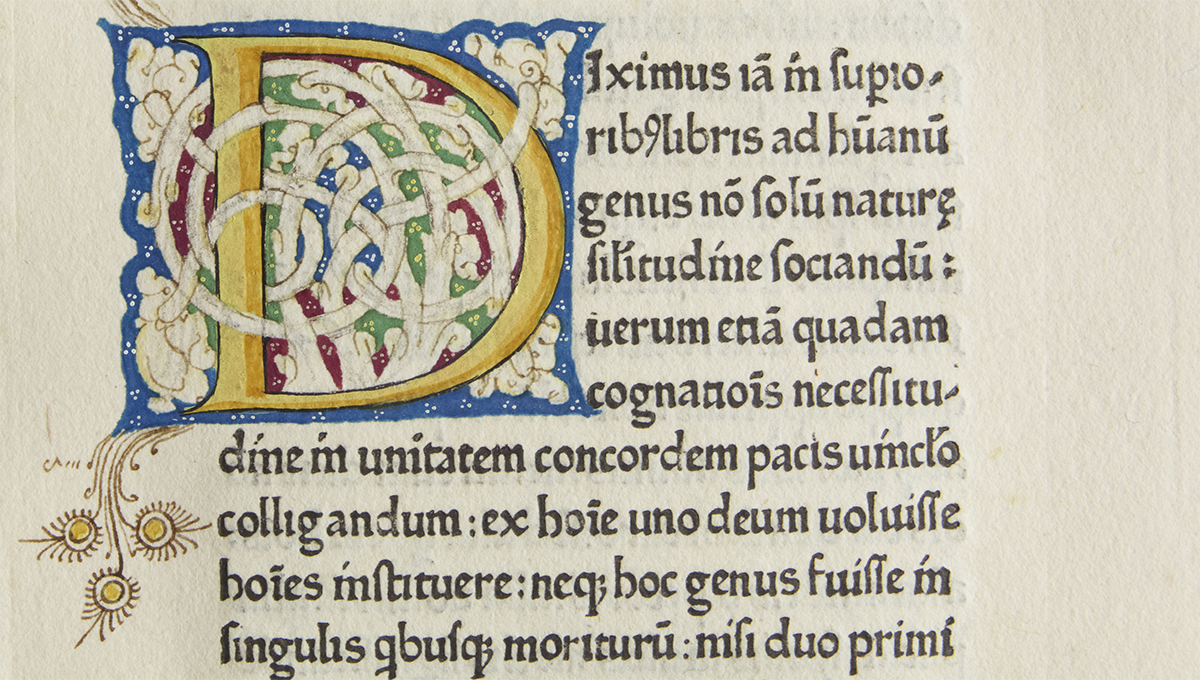 DIximus iā in ſupio-
ribꝯ libris ad hūanū
genus nō ſolū naturę
ſiłitudine ſociandū :
uerum etiā quadam
cognatiōis neceſſitu-
dine in unitatem concordem pacis uincło
colligandum : ex hoīe uno deum uoluiſſe
hoīes inſtituere : neqꝫ hoc genus fuiſſe in
ſingulis qbuſqꝫ moriturū : niſi duo primi